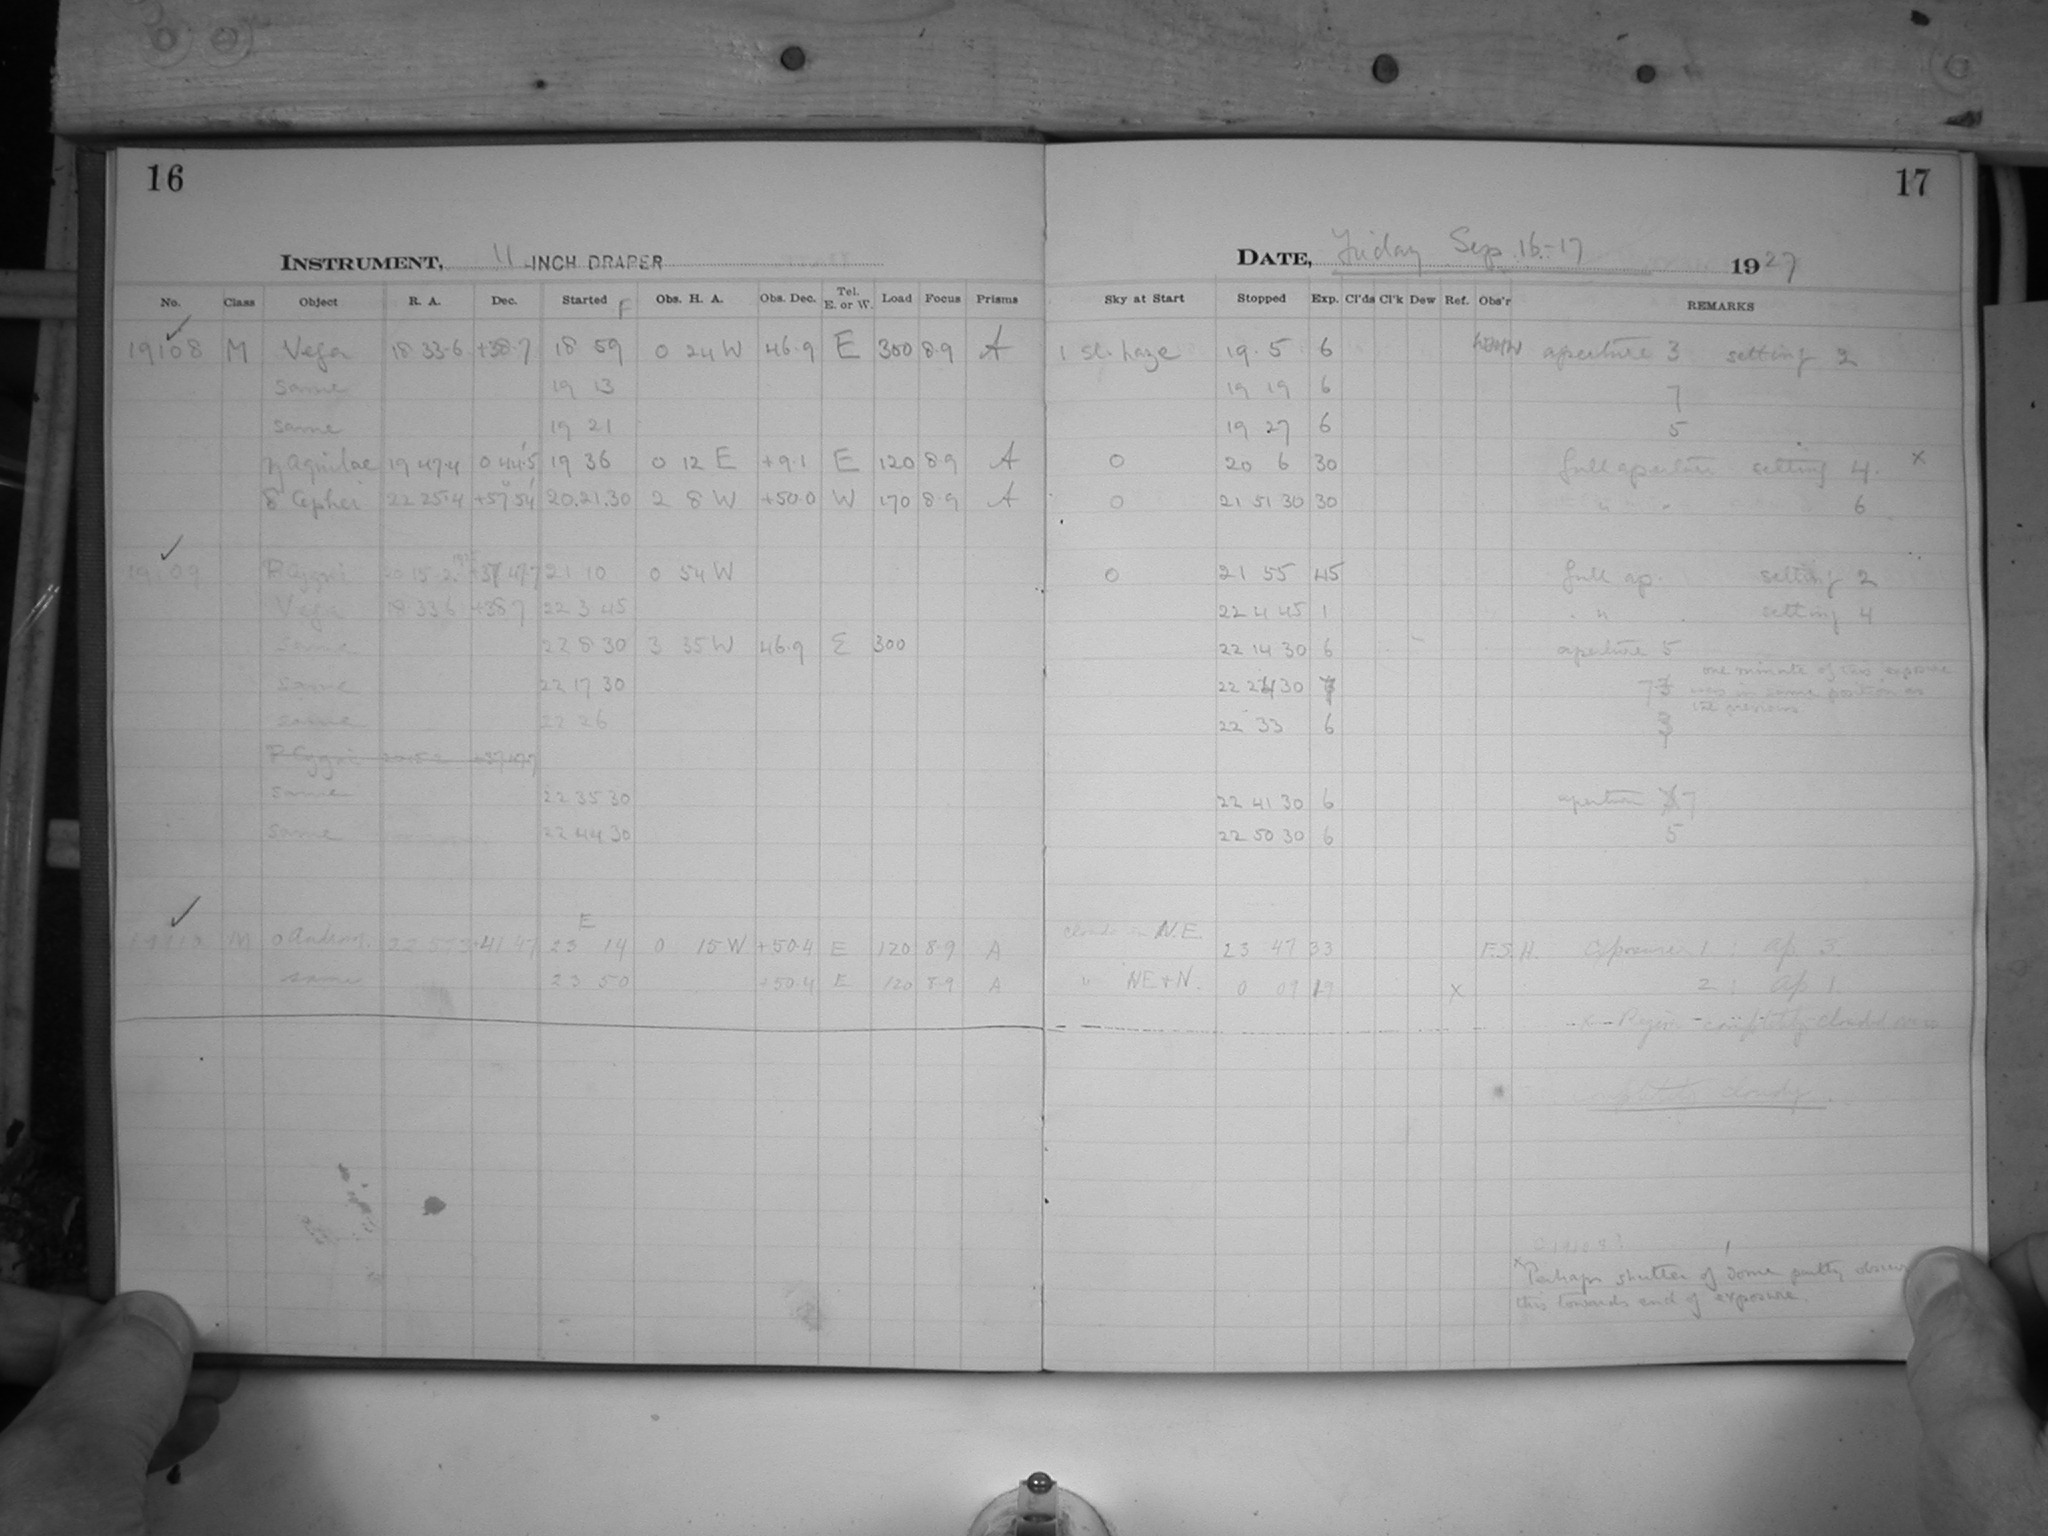 16
17
INSTRUMENT, 11 -INCH DRAPER
DATE, Friday Sep. 16-17 1927
No. Class Object R. A. Dec. Started Obs. H. A. Obs. Dec. Tel. E. or W. Load Focus Prisms Sky at Start Stopped Exp. Cl'ds Cl'k Dew Ref. Obs'r REMARKS
F
19108 M Vega 18 33.6 +38.7 18 59 0 24 W 46.9 E 300 8.9 A 1 sl. haze 19. 5 6 aperture 3 setting 2
same 19 13 19 19 6 7
same 19 21 19 27 6 5
η Aquilae 19 47.4 0 44.5 19 36 0 12 E +9.1 E 120 8.9 A 0 20 6 30 full aperture setting 4. x
δ Cephei 22 25.4 +57 54 20.21.30 2 8 W +50.0 W 170 8.9 A 0 21 51 30 30 " " 6
19109 P Cygni 20 15 2 +37 47.7 21 10 0 54 W 0 21 55 45 full ap. setting 2
Vega 18 33 6 +38 7 22 3 45 22 4 45 1 " setting 4
same 22 8 30 3 35 W 46.9 E 300 22 14 30 6 aperture 5
same 22 17 30 22 24 30 7 7 one minute of this exposure
was in same position as
the previous
same 22 26 22 33 6 3
P Cygni 20 15 2 +37 47.7
same 22 35 30 22 41 30 6 aperture 7
same 22 44 30 22 50 30 6 5
E
19110 M o Androm. 22 57.3 +41 47 23 14 0 15 W +50.4 E 120 8.9 A clouds in N.E. 23 47 33 F.S.H. Exposure 1: ap 3.
same 23 50 +50.4 E 120 8.9 A " NE & N. 0 09 19 x 2: ap 1.
x - Region completely clouded over
completely cloudy.
C 19108?
x Perhaps shutter of dome partly
this towards end of exposure.